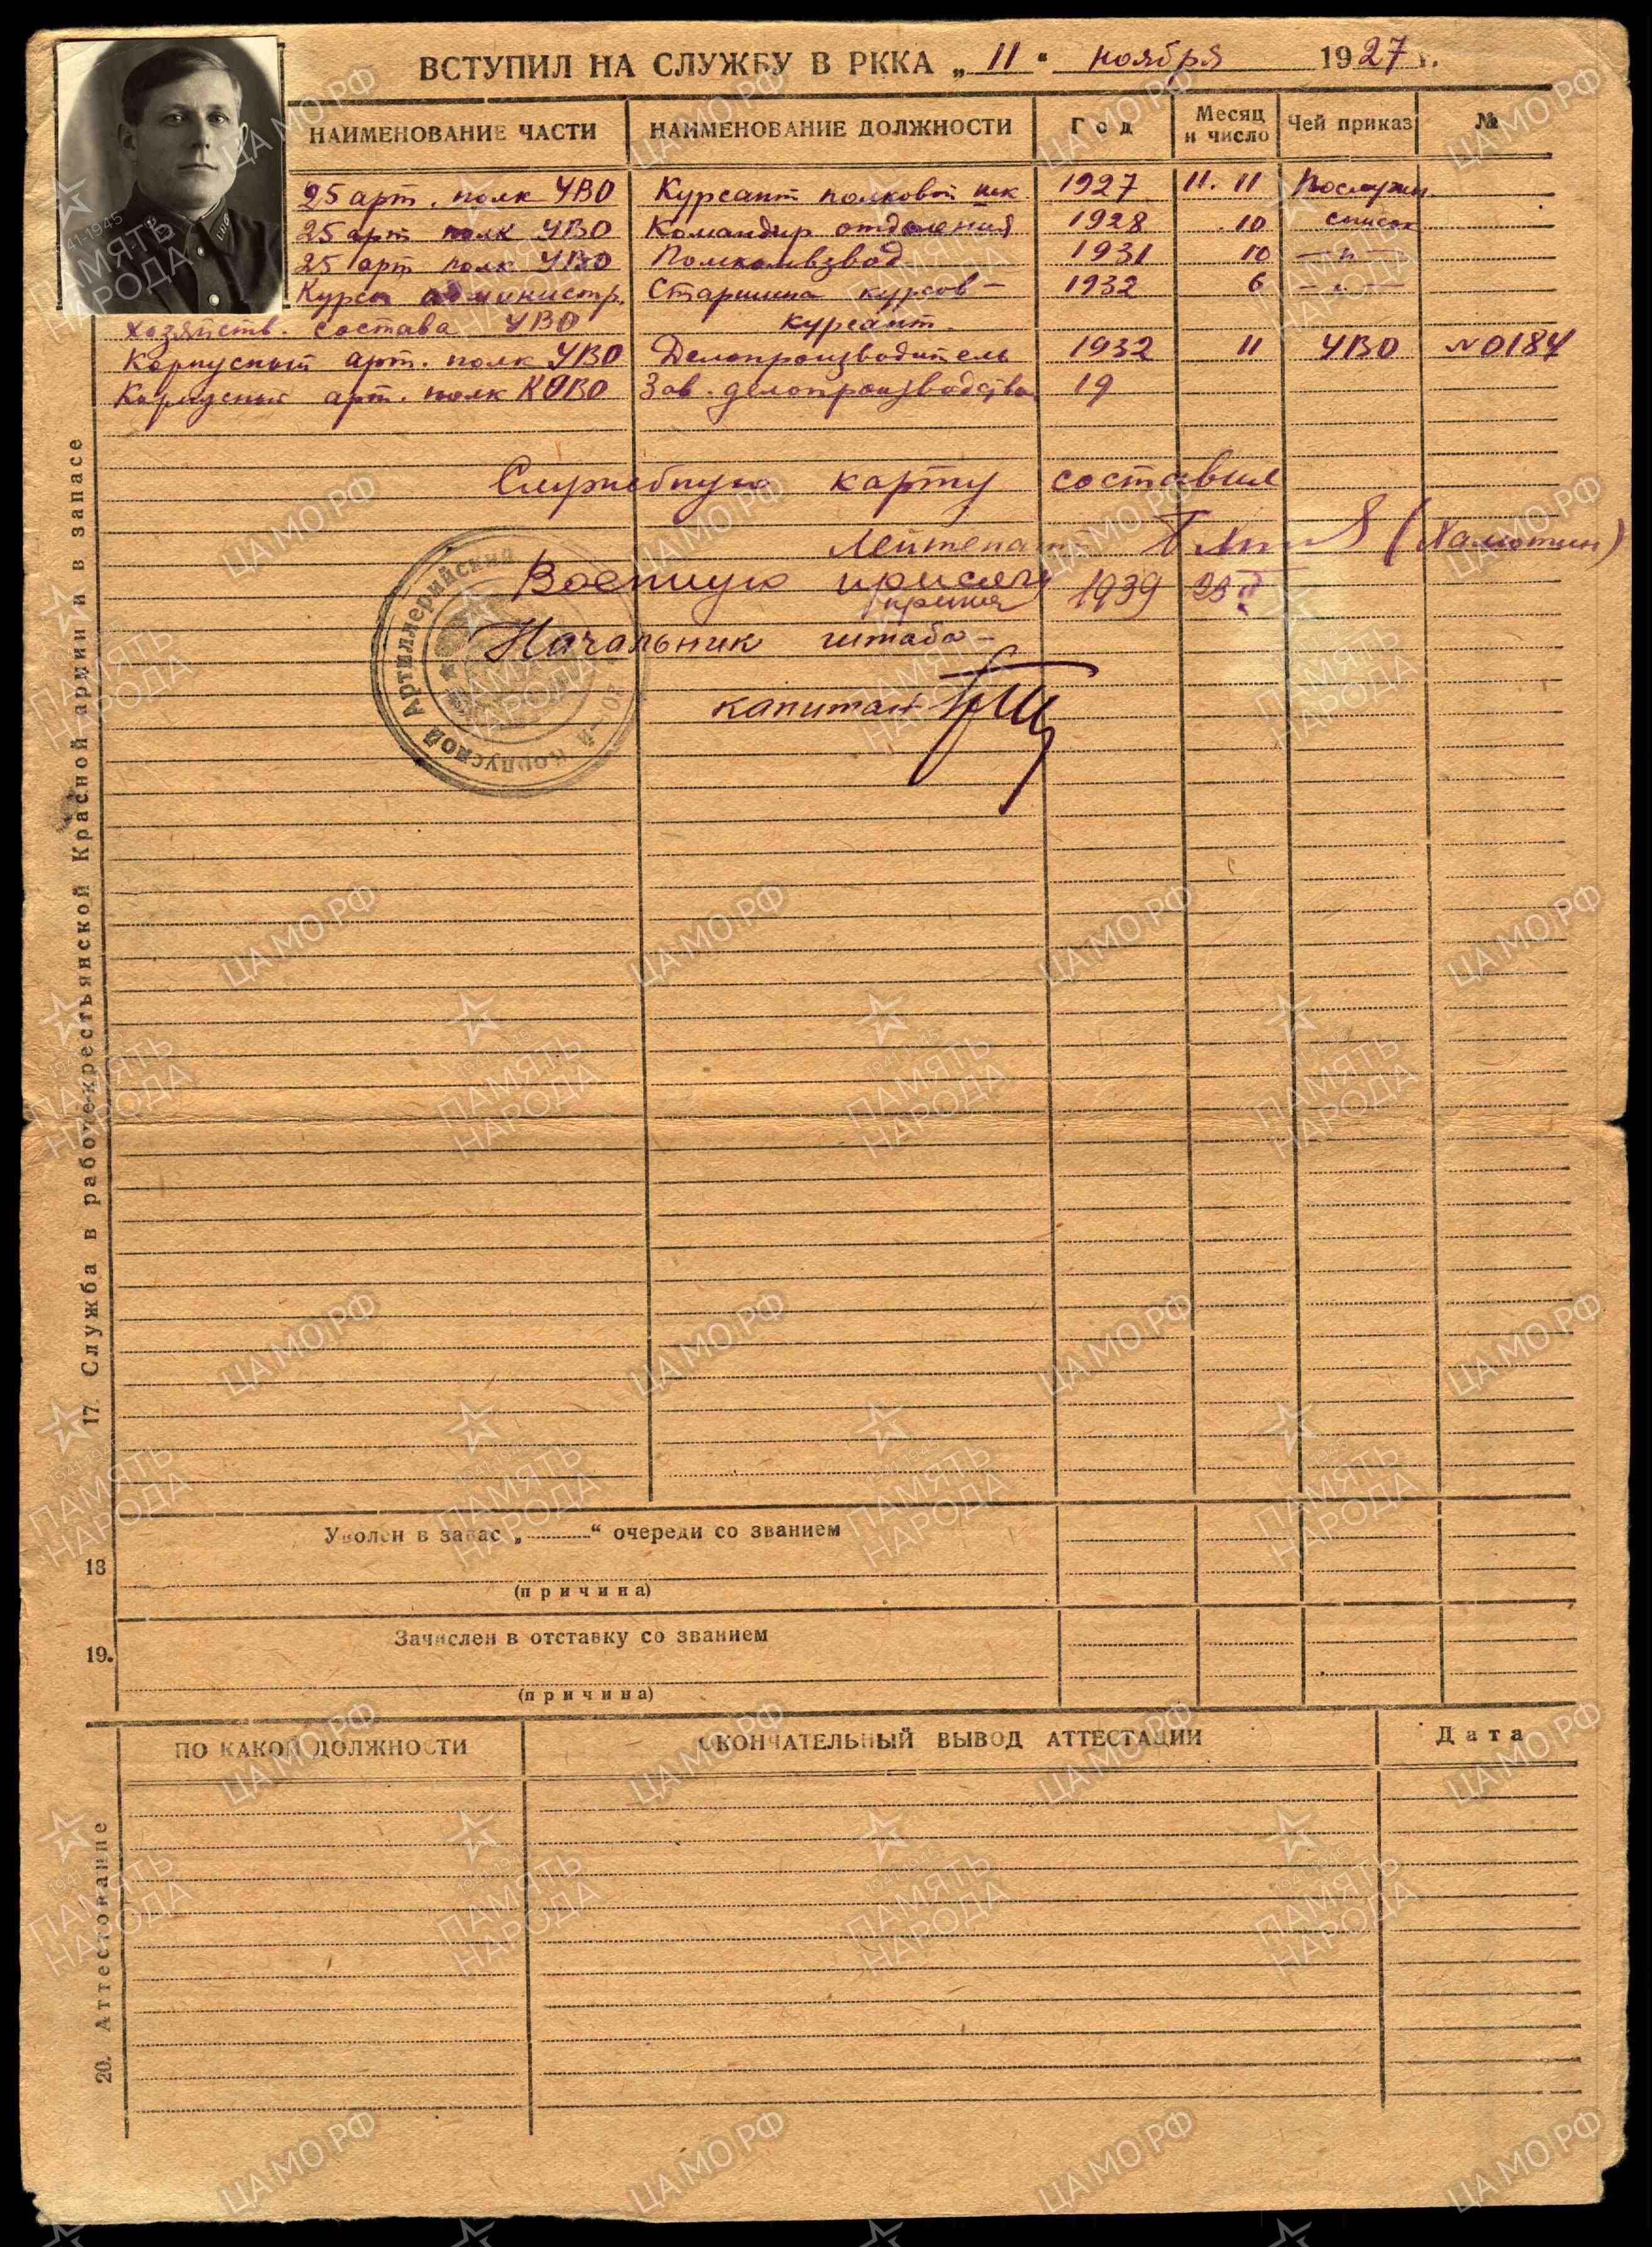 ВСТУПИЛ НА СЛУЖБУ В РККА „ 11 “ ноября 1927 г.
НАИМЕНОВАНИЕ ЧАСТИ НАИМЕНОВАНИЕ ДОЛЖНОСТИ Год Месяц и число Чей приказ №
25 арт. полк УВО Курсант полковой шк. 1927 11. 11 Послужн.
25 арт полк УВО Командир отделения 1928 10 список
25 арт полк УВО Помкомвзвод 1931 10 — " —
Курсы администр. Старшина курсов – 1932 6 — " —
хозяйств. состава УВО курсант.
Корпусный арт. полк УВО Делопроизводитель 1932 11 УВО №0184
Корпусный арт. полк КОВО Зав. делопроизводством 19
Служебную карту составил
Лейтенант (Халютин)
Военную присягу 1939 23 II
принял
Начальник штаба –
капитан
Корпусной Артиллерийский
17. Служба в рабоче-крестьянской Красной армии и в запасе
18 Уволен в запас „ “ очереди со званием
(причина)
19. Зачислен в отставку со званием
(причина)
ПО КАКОЙ ДОЛЖНОСТИ ОКОНЧАТЕЛЬНЫЙ ВЫВОД АТТЕСТАЦИИ Дата
20. Аттестование
ЦАМО.РФ
1941-1945
ПАМЯТЬ
НАРОДА